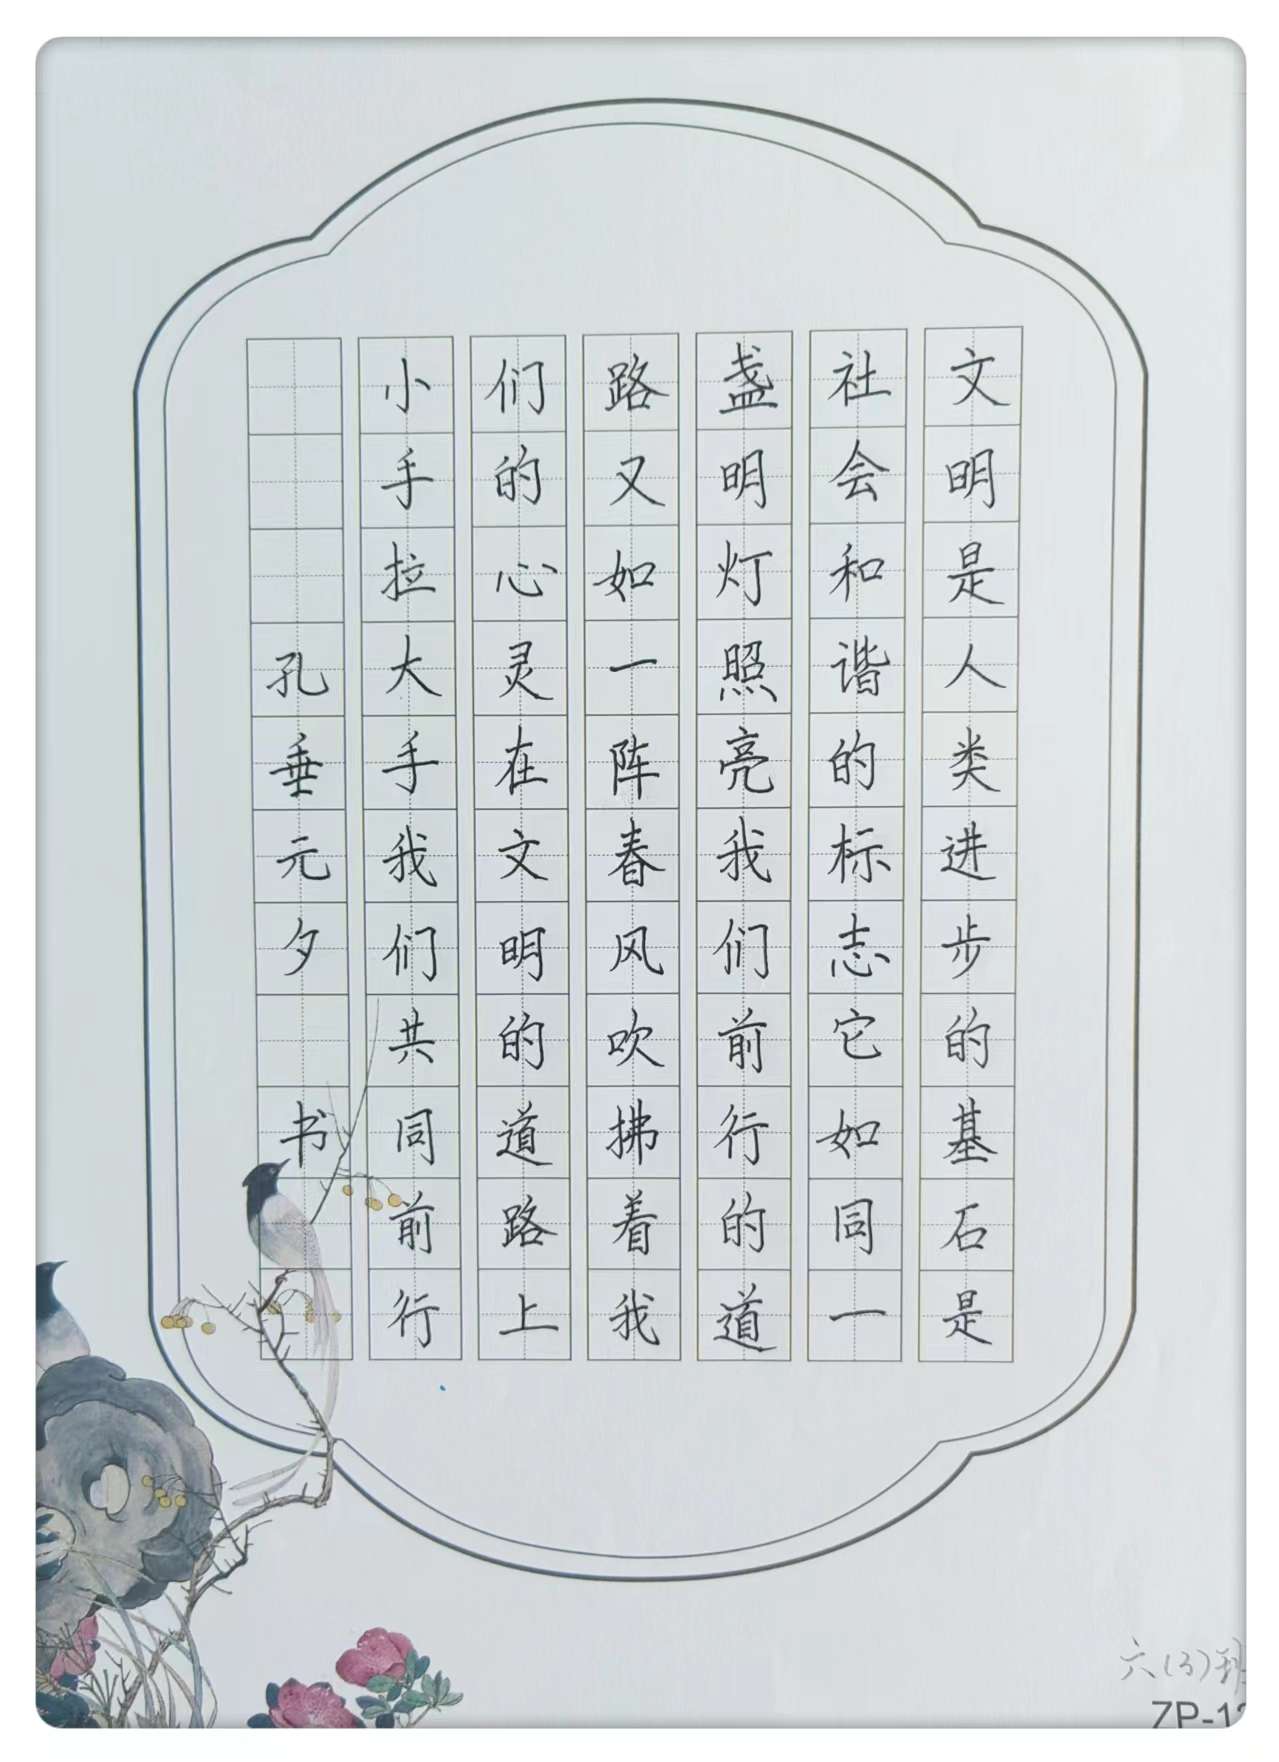 文明是人类进步的基石是
社会和谐的标志它如同一
盏明灯照亮我们前行的道
路又如一阵春风吹拂着我
们的心灵在文明的道路上
小手拉大手我们共同前行
孔垂元夕 书
六(3)班
ZP-1